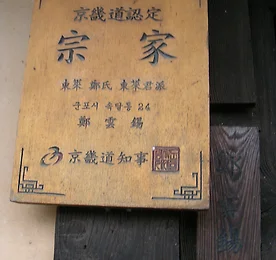 京畿道認定
宗家
東萊 鄭氏 東萊君派
군포시 속달동 24
鄭雲錫
京畿道知事